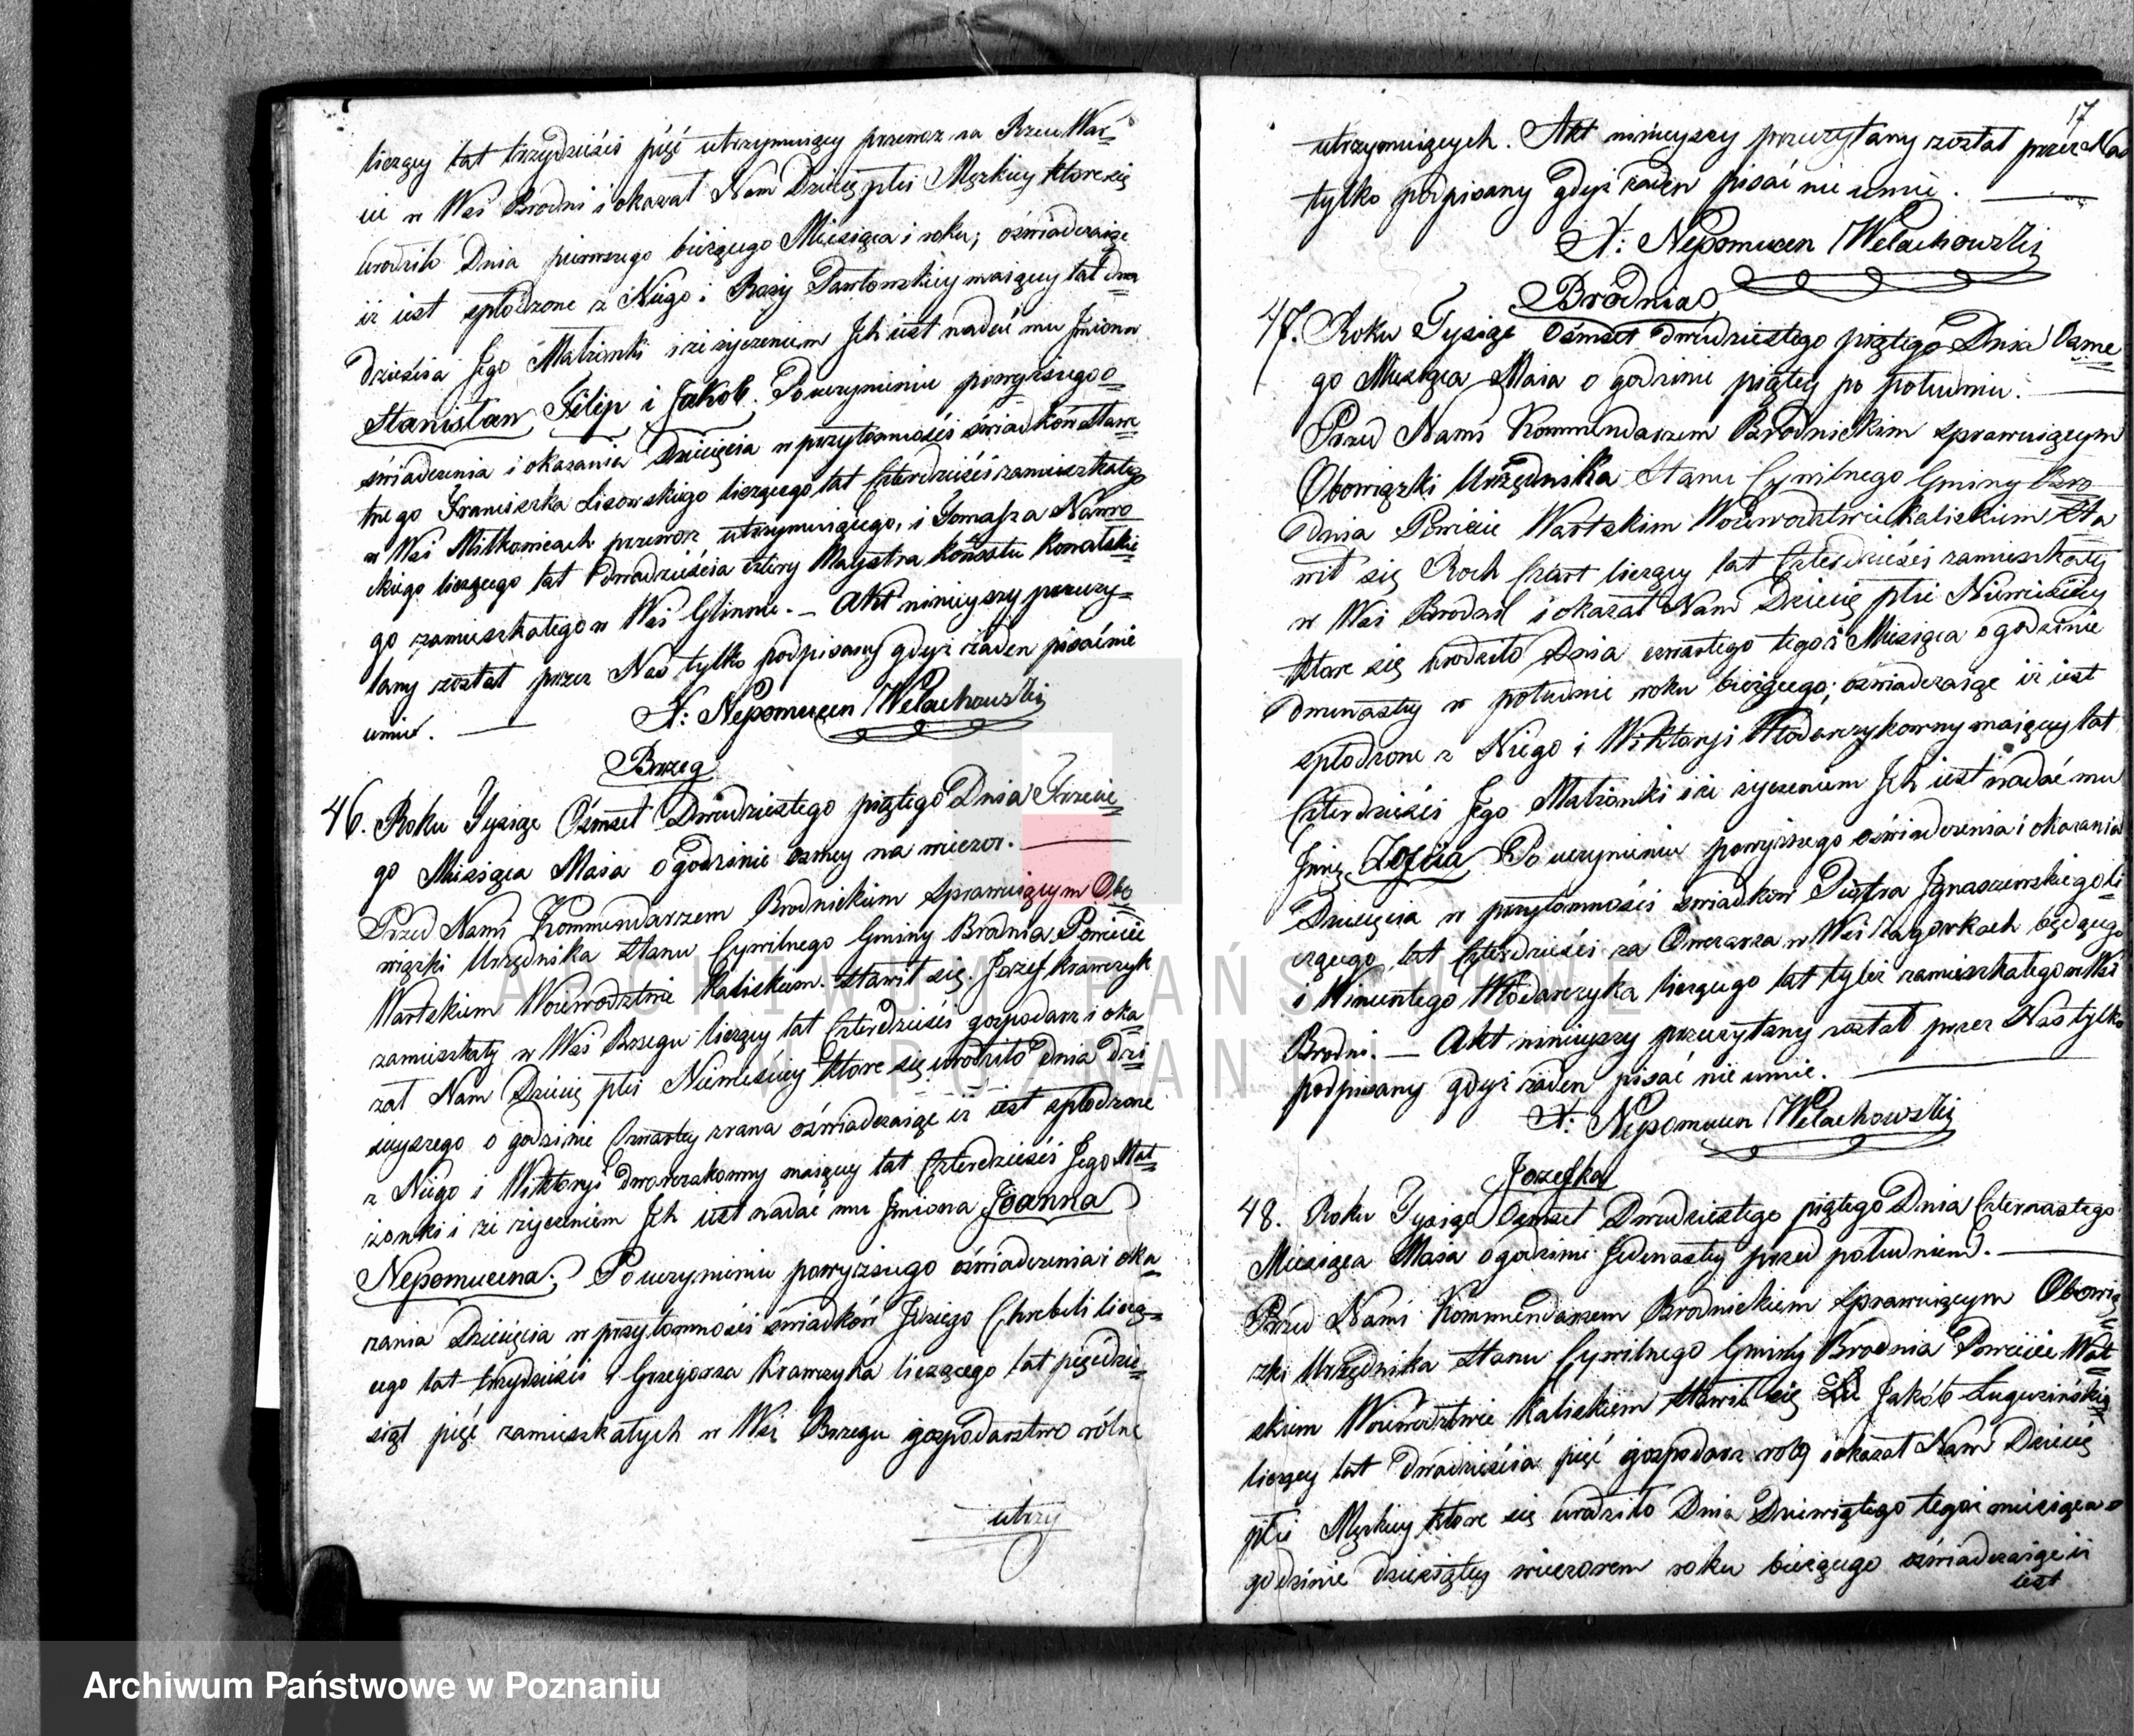 liczący lat trzydzieści pięć utrzymuiący przewoz na Rzece War=
cie w Wsi Brodni i okazał Nam Dziecię płci Męzkiey ktore się
urodziło Dnia pierwszego bieżącego Miesiąca i roku; oświadczaiąc
iż iest spłodzone z Niego i Rozy Pawłowskiey maiącey lat dwa
dzieścia Jego Małżonki i że życzeniem Jch iest nadać mu Jmiona
Stanisław, Filip i Jakob. Po uczynieniu powyższego o=
świadczenia i okazania Dziecięcia w przytomności świadków Staw=
nego Franciszka Lisowskiego liczącego lat Czterdzieści zamieszkałego
w Wsi Miłkowicach przewoz utrzymuiącego, i Tomasza Nawro=
ckiego liczącego lat dwadzieścia cztery Maystra Konsztu Kowalskie=
go zamieszkałego w Wsi Glinnie. — Akt ninieyszy przeczy=
tany został przez Nas tylko podpisany gdyż żaden pisać nie
umie.
X: Nepomucen Welachowski
Brzeg
46. Roku Tysiąc Ośmset Dwudziestego piątego Dnia Trzecie=
go Miesiąca Maia o godzinie osmey na wieczor.
Przed Nami Kommendarzem Brodnickim Sprawuiącym Obo=
wiązki Urzędnika Stanu Cywilnego Gminy Brodnia Powiecie
Wartskim Woiewodztwie Kaliskiem. Stawił się Jozef Krawczyk
zamieszkały w Wsi Brzegu liczący lat Czterdzieści gospodarz i oka
zał Nam Dziecię płci Niewieściey ktore się urodziło dnia dzi
sieyszego o godzinie Czwartey zrana oświadczaiąc iż iest spłodzone
z Niego i Wiktoryi Dworzakowny maiącey lat Czterdzieści Jego Mał=
żonki i że życzeniem Jch iest nadać mu Jmiona Joanna
Nepomucena; Po uczynieniu powyższego oświadczenia i oka=
zania Dziecięcia w przytomności świadków Jdziego Chrebeli licz
ącego lat trzydzieści i Grzegorza Krawczyka liczącego lat pięćdzie=
siąt pięć zamieszkałych w Wsi Brzegu gospodarstwo rólne
utrzy
17
utrzymuiących. Akt ninieyszy przeczytany został przez Nas
tylko podpisany gdyż żaden pisać nie umie.
X: Nepomucen Welachowski
Brodnia
47. Roku Tysiąc Ośmset dwudziestego piątego Dnia Osme
go Miesiąca Maia o godzinie piątey po południu.
Przed Nami Kommendarzem Brodnickim Sprawuiącym
Obowiązki Urzędnika Stanu Cywilnego Gminy Bro
dnia Powiecie Wartskim Woiewodztwie Kaliskiem Sta
wił się Roch liczący lat Czterdzieści zamieszkały
w Wsi Brodni i okazał Nam Dziecię płci Niewieściey
ktore się urodziło Dnia czwartego tegoż Miesiąca o godzinie
dwunastey w południe roku bieżącego; oświadczaiąc iż iest
spłodzone z Niego i Wiktoryi Włodarczykowny maiącey lat
Czterdzieści Jego Małżonki i że życzeniem Jch iest nadać mu
Jmię Zofiia Po uczynieniu powyższego oświadczenia i okazania
Dziecięcia w przytomności świadków Piotra Jgnaszewskiego li
czącego lat Czterdzieści za Owczarza w Wsi Zagorkach będącego
i Wincentego Włodarczyka liczącego lat tyleż zamieszkałego w Wsi
Brodni. — Akt ninieyszy przeczytany został przez Nas tylko
podpisany gdyż żaden pisać nie umie.
X: Nepomucen Welachowski
Jozefka
48. Roku Tysiąc Osmset Dwudziestego piątego Dnia Czternastego
Miesiąca Maia o godzinie Jedenastey przed południem.
Przed Nami Kommendarzem Brodnickiem Sprawuiącym Obowią
zki Urzędnika Stanu Cywilnego Gminy Brodnia Powiecie Wart
skiem Woiewodztwie Kaliskiem Stawił się Jakób Ługuziński
liczący lat dwadzieścia pięć gospodarz i okazał Nam Dziecię
płci Męzkiey ktore się urodziło Dnia Dziewiątego tegoż miesiąca o
godzinie dziesiątey wieczorem roku bieżącego oświadczaiąc iż
iest
ARCHIWUM PAŃSTWOWE
W POZNANIU
Archiwum Państwowe w Poznaniu